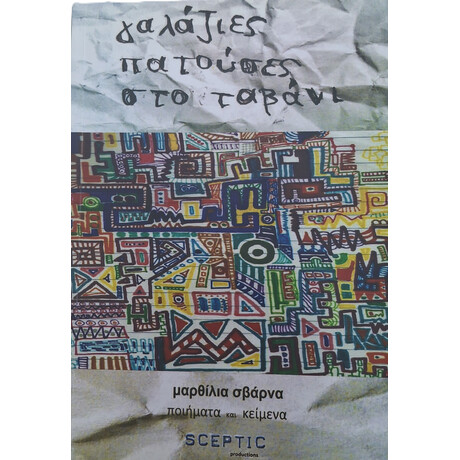 γαλάζιες
πατούσες
στο ταβάνι
μαρθίλια σβάρνα
ποιήματα και κείμενα
SCEPTIC
productions